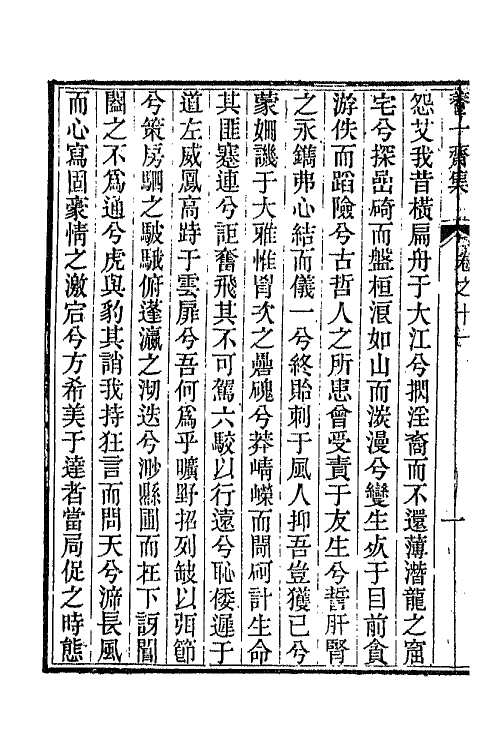 養一齋集 卷之十一 一
怨艾我昔橫扁舟于大江兮擱淫裔而不還薄潛龍之窟
宅兮探嵒碕而盤桓浪如山而淡漫兮變生於于目前貪
游佚而蹈險兮古哲人之所患曾受責于友生兮誓肝腎
之永鐫弗心結而儀一兮終貽刺于風人抑吾豈獲已兮
蒙姍譏于大雅惟胷次之礨磈兮莽崝嶸而閜砢計生命
其匪蹇連兮詎奮飛其不可駕六駮以行遠兮恥倭遲于
道左威鳳高跱于雲扉兮吾何爲乎曠野招列缺以弭節
兮策房駟之駊騀俯蓬瀛之沏迭兮渺縣圃而在下訝閶
闔之不爲通兮虎與豹其誚我持狂言而問天兮渧長風
而心寫固豪情之激宕兮方希美于達者當局促之時態